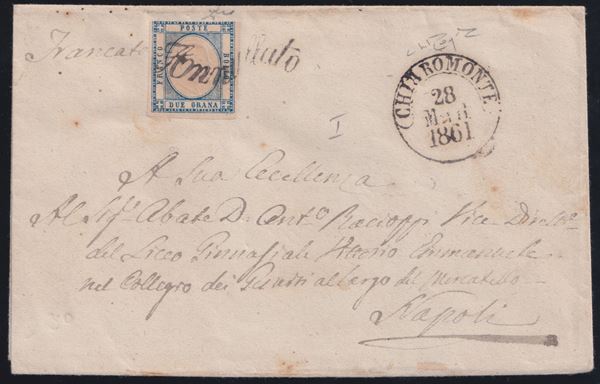 Francato
POSTE
FRANCO
BOLLO
DUE GRANA
Annullato
CHIAROMONTE
28
1861
I
A Sua Eccellenza
Al Sig. Abate D. Anto Racioppi Vice Diretto
del Liceo Ginnasiale Vittorio Emmanuele
nel Collegio dei Gesuiti al largo del Mercatello
Napoli